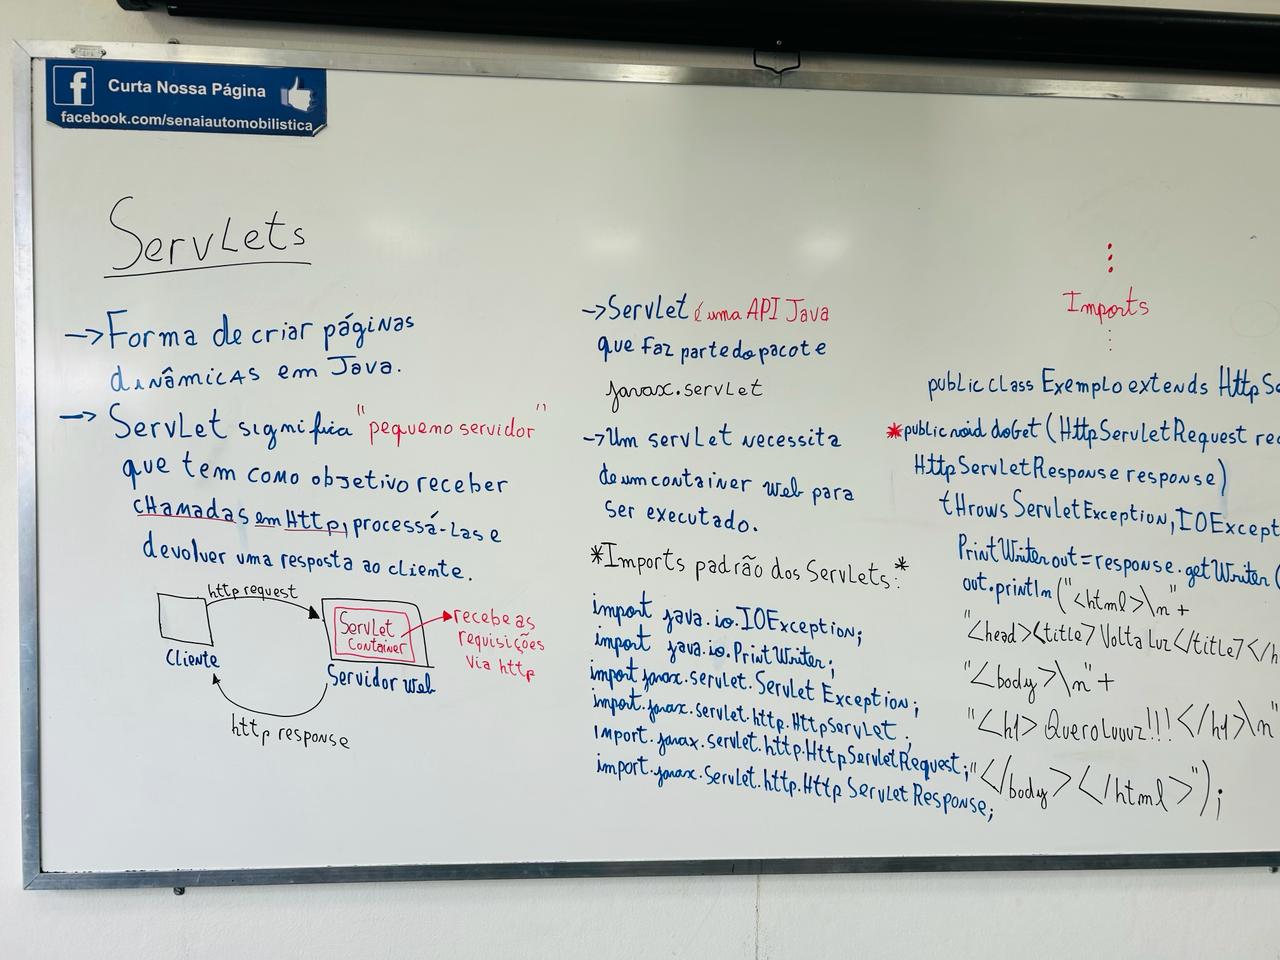 Curta Nossa Página
facebook.com/senaiautomobilistica
Servlets
→ Forma de criar páginas
dinâmicas em Java.
→ Servlet significa "pequeno servidor"
que tem como objetivo receber
chamadas em Http, processá-las e
devolver uma resposta ao cliente.
http request
Cliente
Servlet
Container
Servidor web
recebe as
requisições
via http
http response
→ Servlet é uma API Java
que faz parte do pacote
javax.servlet
→ Um servlet necessita
de um container web para
ser executado.
*Imports padrão dos Servlets:*
import java.io.IOException;
import java.io.PrintWriter;
import javax.servlet.Servlet Exception;
import.javax.servlet.http.HttpServlet;
import.javax.servlet.http.HttpServletRequest;
import.javax.Servlet.http.Http Servlet Response;
Imports
public class Exemplo extends HttpSe
*public void doGet (HttpServletRequest req
HttpServletResponse response)
throws ServletException, IOExcept
PrintWriter out = response.getWriter(
out.println("<html>\n"+
"<head><title>Volta Luz</title></h
"<body>\n"+
"<h1>Quero Luuuz!!!</h1>\n"
"</body></html>");